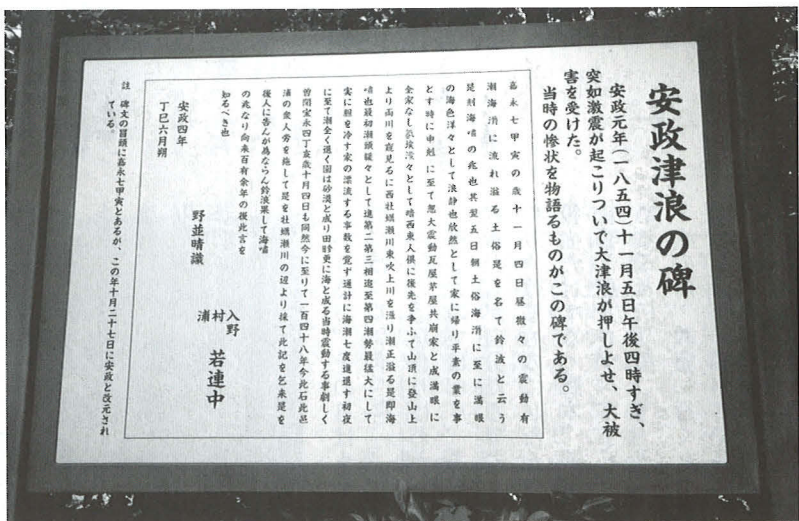 安政津浪の碑
安政元年(一八五四)十一月五日午後四時すぎ、
突如激震が起こりついで大津浪が押しよせ、大被
害を受けた。
当時の惨状を物語るものがこの碑である。
嘉永七甲寅の歳十一月四日昼微々の震動有
潮海滸に流れ溢る土俗是を名て鈴波と云う
是則海嘯の兆也其翌五日朝土俗海滸に至に満眼
の海色洋々として浪静也欣然として家に帰り平素の業を事
とす時に申刻に至て忽大震動瓦屋茅屋共崩家と成満眼に
全家なし氛埃濛々として暗西東人倶に後先を争ふて山頂に登山上
より両川を窺見るに西牡蠣瀬川東吹上川を漲り潮正溢る是即海
嘯也最初潮頭緩々として進第二第三相追至第四潮勢最猛大にして
実に胆を冷す家の漂流する事数を覚ず通計に海潮七度進退す初夜
に至て潮全く退く園は砂漠と成り田疇更に海と成る当時震動する事劇しく
曽聞宝永四丁亥歳十月四日も同然今に至りて一百四十八年今此石此邑
浦の衆人労を施して是を牡蠣瀬川の辺より採て此記を乞来是を
後人に告んが為ならん鈴浪果して海嘯
の兆なり向来百有余年の後此言を
知るべき也
安政四年
丁巳六月朔
野並晴識
入野
村
浦
若連中
註 碑文の冒頭に嘉永七甲寅とあるが、この年十月二十七日に安政と改元され
ている。